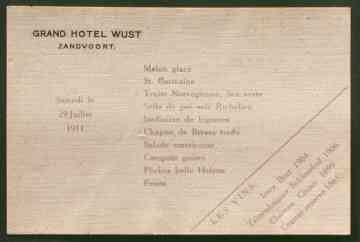 GRAND HOTEL WUST
ZANDVOORT.
Samedi le
29 Juillet
1911
Melon glacé
St. Germaine
Truite Norvegienne,
Selle de pré-salé Richelieu
Jardinière de legumes
Chapon de Bresse truffe
Salade americaine
Compote
Pêches belle Helene
Fruits
LES VINS:
1904
1906
Gruau 1899
reserve